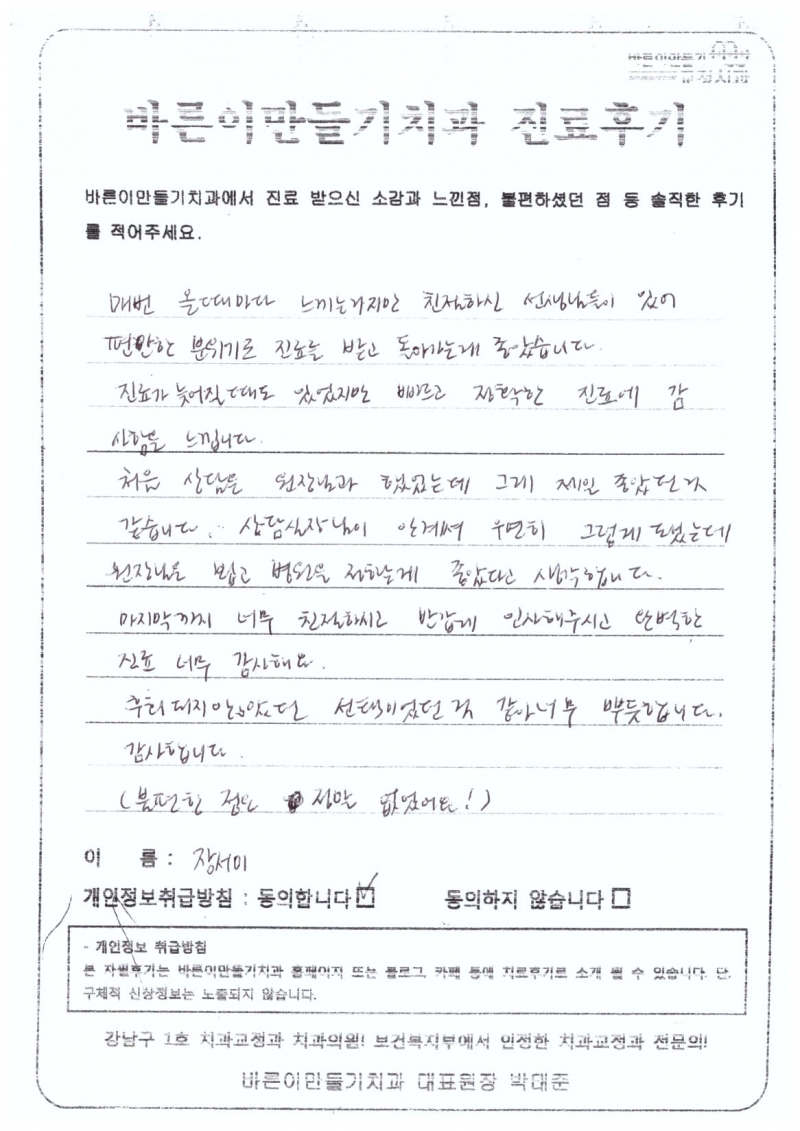 바른이만들기
교정치과
바른이만들기치과 진료후기
바른이만들기치과에서 진료 받으신 소감과 느낀점, 불편하셨던 점 등 솔직한 후기
를 적어주세요.
매번 올때마다 느끼는거지만 친절하신 선생님들이 있어
편안한 분위기로 진료를 받고 돌아가는게 좋았습니다.
진료가 늦어질때도 있었지만 빠르고 정확한 진료에 감
사함을 느낍니다.
처음 상담을 원장님과 했었는데 그게 제일 좋았던 것
같습니다. 상담실장님이 안계셔 우연히 그렇게 되었는데
원장님을 뵙고 병원을 정하는게 좋았다고 생각합니다.
마지막까지 너무 친절하시고 반갑게 인사해주시고 완벽한
진료 너무 감사해요.
후회되지않았던 선택이었던 것 같아 너무 뿌듯합니다.
감사합니다.
(불편한 점은 정말 없었어요!)
이 름 : 장서미
개인정보취급방침 : 동의합니다 동의하지 않습니다
- 개인정보 취급방침
본 자필후기는 바른이만들기치과 홈페이지 또는 블로그, 카페 등에 치료후기로 소개 될 수 있습니다. 단,
구체적 신상정보는 노출되지 않습니다.
강남구 1호 치과교정과 치과의원! 보건복지부에서 인정한 치과교정과 전문의!
바른이만들기치과 대표원장 박대준